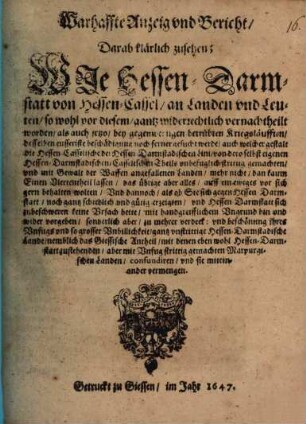 16.
Warhaffte Anzeig vnd Bericht/
Darab klärlich zusehen;
WJe Hessen-Darm-
statt von Hessen-Cassel/ an Landen vnd Leu-
ten/ so wohl vor diesem/ gantz widerrechtlich vernachtheilt
worden/ als auch jetzo/ bey gegenwertigen betrübten Kriegsläufften/
desselben eusserste beschädigung noch ferner gesucht werde; auch welcher gestalt
die Hessen-Casselische der Hessen-Darmstadischen
Hessen-Darmstadischen/ Casselischen Theils unbefugt strittig gemachten/
vnd mit Gewalt der Waffen angefallenen Landen/ mehr nicht/ dan kaum
Einen Viertentheil lassen/ das übrige aber alles/ vor sich
gern behalten wolten; Vnd dannoch/ als ob Sie sich gegen Hessen-Darm-
statt/ noch gantz schiedlich und gütig erzeigten/ vnd Hessen-Darmstatt sich
zubeschweren keine Vrsach hette/ mit handgreifflichem Vngrund hin und
wider vorgeben/ sonderlich aber/ zu mehrer verdeck- vnd beschönung jhres
Vnfugs vnd so grosser Vnbillichkeit/ gantz vnstrittige Hessen-Darmstadische
Lande/ nemblich das Giessische Antheil/ mit denen eben wohl Hessen-Darm-
statt zustehenden/ aber mit Vnfug strittig gemachten Marpurgi-
schen Landen/ confundiren/ vnd sie mitein-
ander vermengen.
Getruckt zu Giessen/ im Jahr 1647.